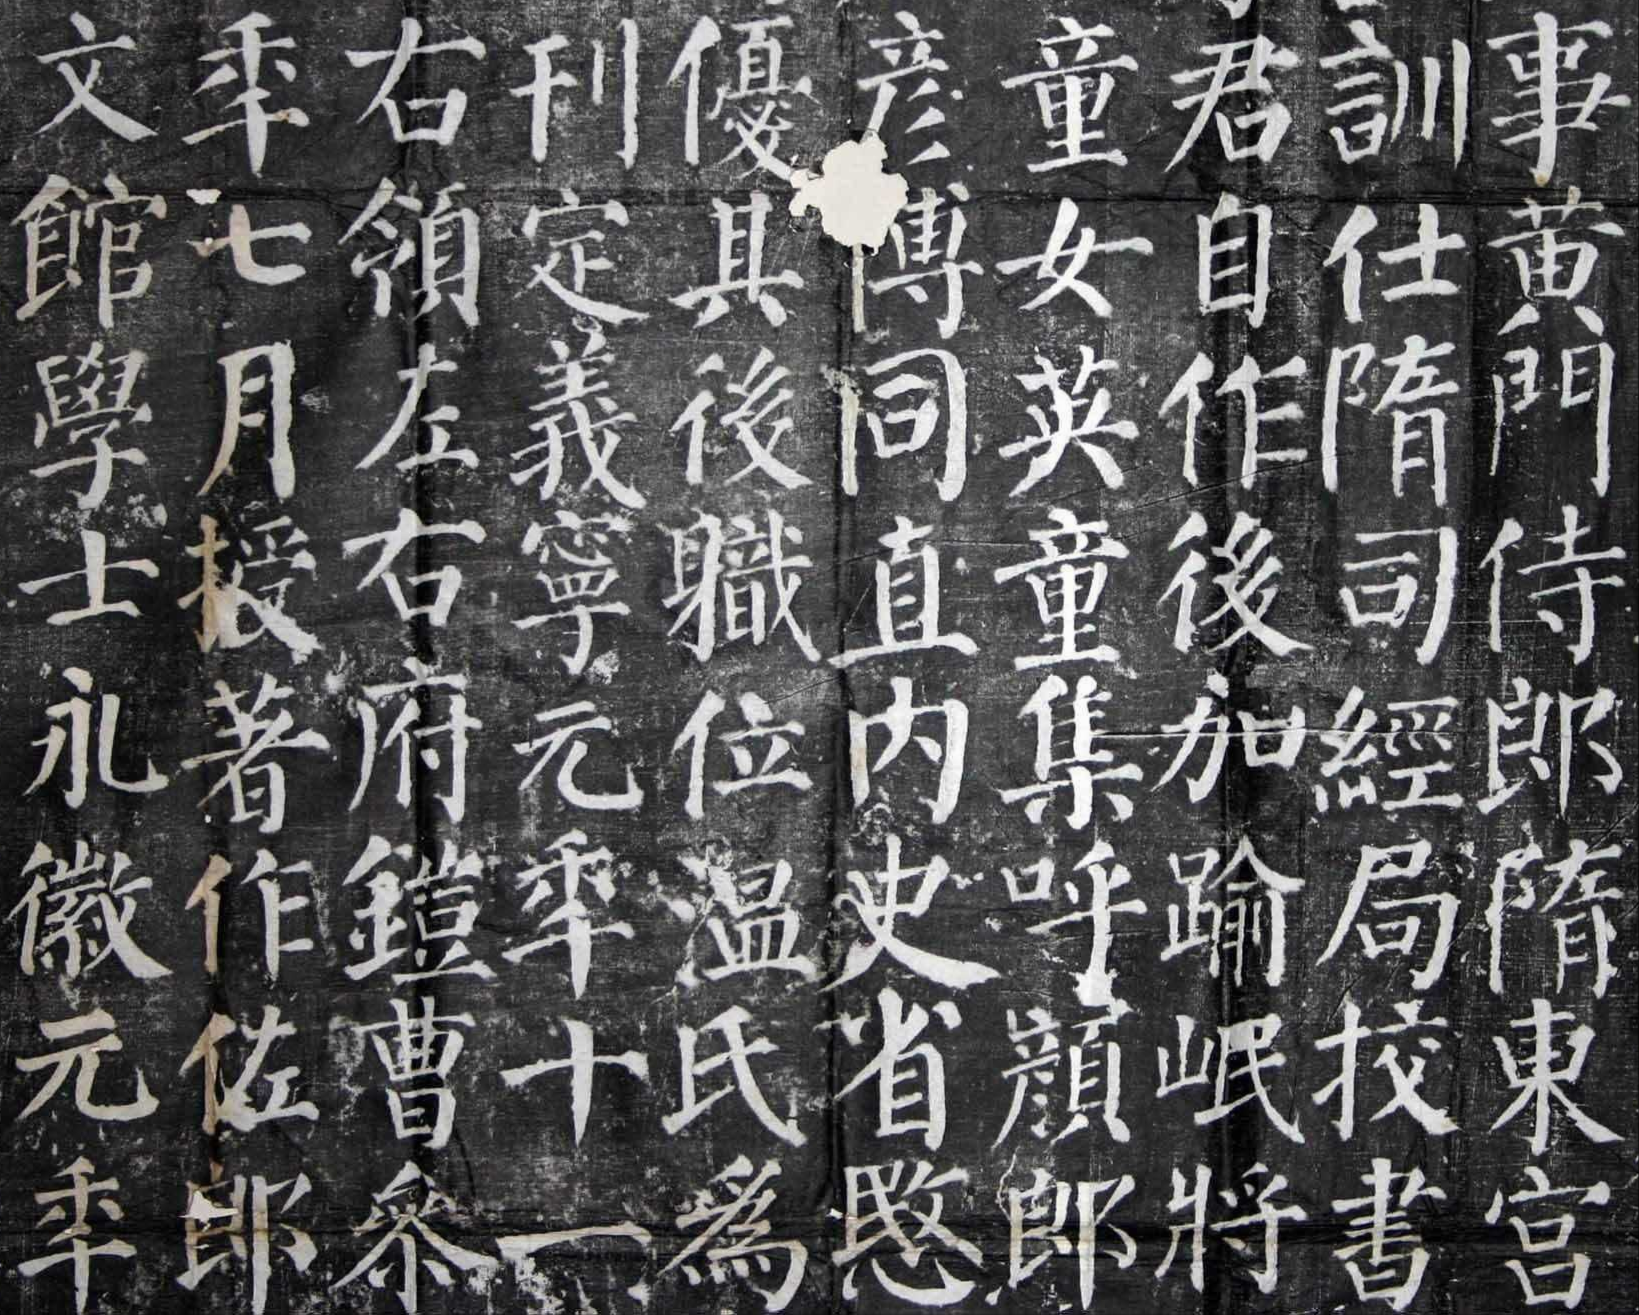 事黄門侍郎隋東宫
訓仕隋司經局挍書
君自作後加踰岷將
童女英童集呼顔郎
彦博同直内史省愍
優其後職位温氏爲
刊定義寧元秊十一
右領左右府鎧曹叅
秊七月授著作佐郎
文館學士永徽元秊